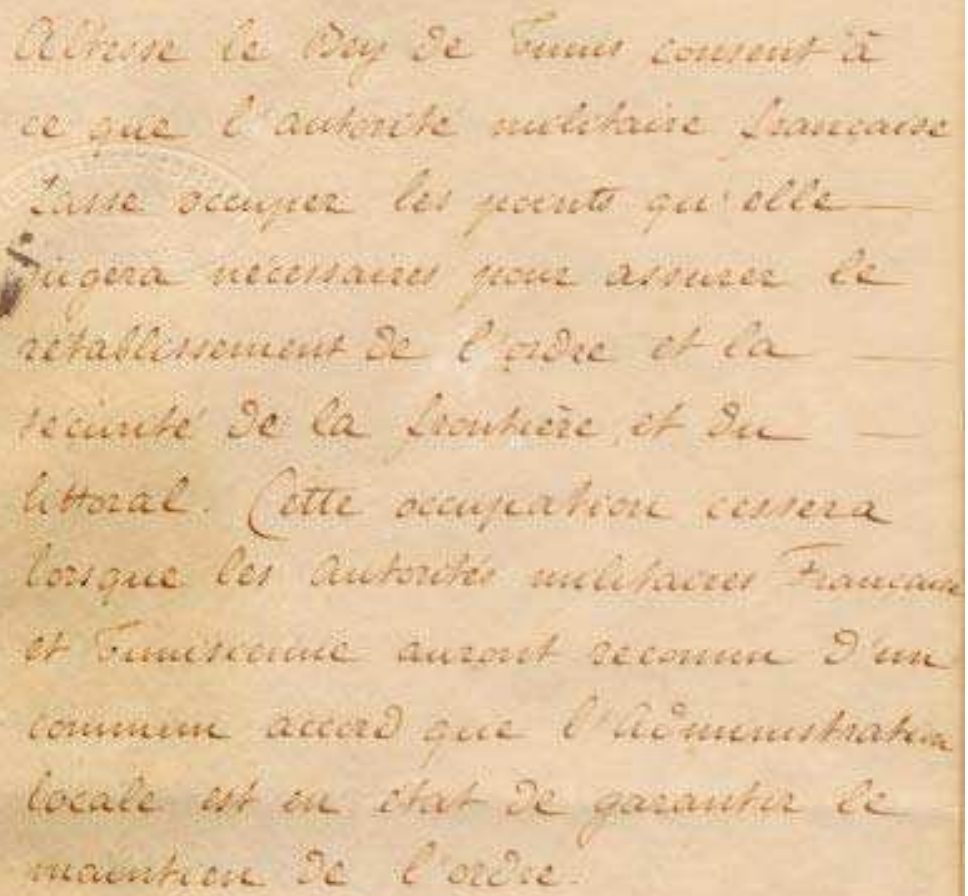 Altesse le Bey de Tunis consent à
ce que l'autorité militaire française
fasse occuper les points qu'elle
jugera nécessaires pour assurer le
rétablissement de l'ordre et la
sécurité de la frontière et du
littoral. Cette occupation cessera
lorsque les autorités militaires Française
et Tunisienne auront reconnu d'un
commun accord que l'administration
locale est en état de garantir le
maintien de l'ordre.